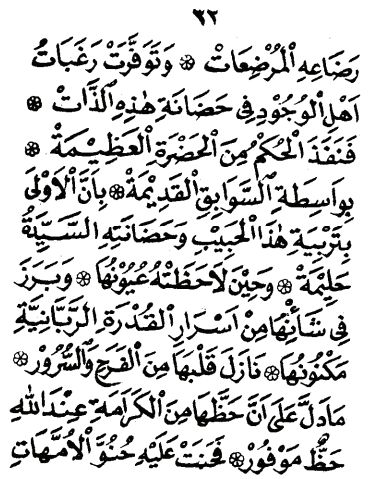 ٣٢
رَضَاعِهِ الْمُرْضِعَاتْ ۞ وَتَوَفَّرَتْ رَغَبَاتُ
اَهْلِ الْوُجُوْدِ فِى حَضَانَةِ هٰذِهِ الذَّاتْ ۞
فَنَفَذَ الْحُكْمُ مِنَ الْحَضْرَةِ الْعَظِيْمَةْ ۞
بِوَاسِطَةِ السَّوَابِقِ الْقَدِيْمَةْ ۞ بِاَنَّ الْاَوْلَى
بِتَرْبِيَةِ هٰذَا الْحَبِيْبِ وَحَضَانَتِهِ السَّيِّدَةُ
حَلِيْمَةْ ۞ وَحِيْنَ لَاحَظَتْهُ عُيُوْنُهَا ۞ وَبَرَزَ
فِى شَأْنِهَا مِنْ اَسْرَارِ الْقُدْرَةِ الرَّبَّانِيَّةِ
مَكْنُوْنُهَا ۞ نَازَلَ قَلْبَهَا مِنَ الْفَرَحِ وَالسُّرُوْرِ ۞
مَادَلَّ عَلَى اَنَّ حَظَّهَا مِنَ الْكَرَامَةِ عِنْدَ اللهِ
حَظٌّ مَوْفُوْرْ ۞ فَحَنَتْ عَلَيْهِ حُنُوَّ الْاُمَّهَاتِ